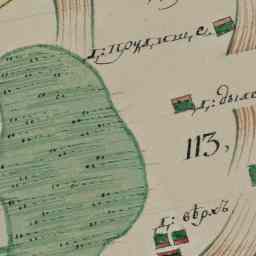 д: Прудище
д: дыле
113,
д: верхъ